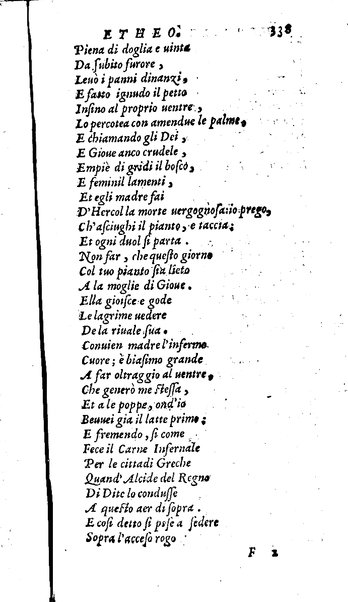 ETHEO. 338
Piena di doglia e uinta
Da ſubito furore,
Leuò i panni dinanzi,
E fatto ignudo il petto
Inſino al proprio uentre,
Lo percotea con amendue le palme,
E chiamando gli Dei,
E Gioue anco crudele,
Empiè di gridi il boſco,
E feminil lamenti,
Et egli madre fai
D'Hercol la morte uergognoſa: io prego,
Ch'aſciughi il pianto, e taccia;
Et ogni duol ſi parta.
Non far, che queſto giorno
Col tuo pianto ſia lieto
A la moglie di Gioue.
Ella gioiſce e gode
Le lagrime uedere
De la riuale ſua.
Conuien madre l'infermo
Cuore; è biaſimo grande
A far oltraggio al uentre,
Che generò me ſteſſa,
Et a le poppe, ond'io
Beuuei gia il latte primo;
E fremendo, ſi come
Fece il Carne Infernale
Per le cittadi Greche
Quand'Alcide del Regno
Di Dite lo conduſſe
A queſto aer di ſopra.
E coſi detto ſi poſe a ſedere
Sopra l'acceſo rogo
F 2